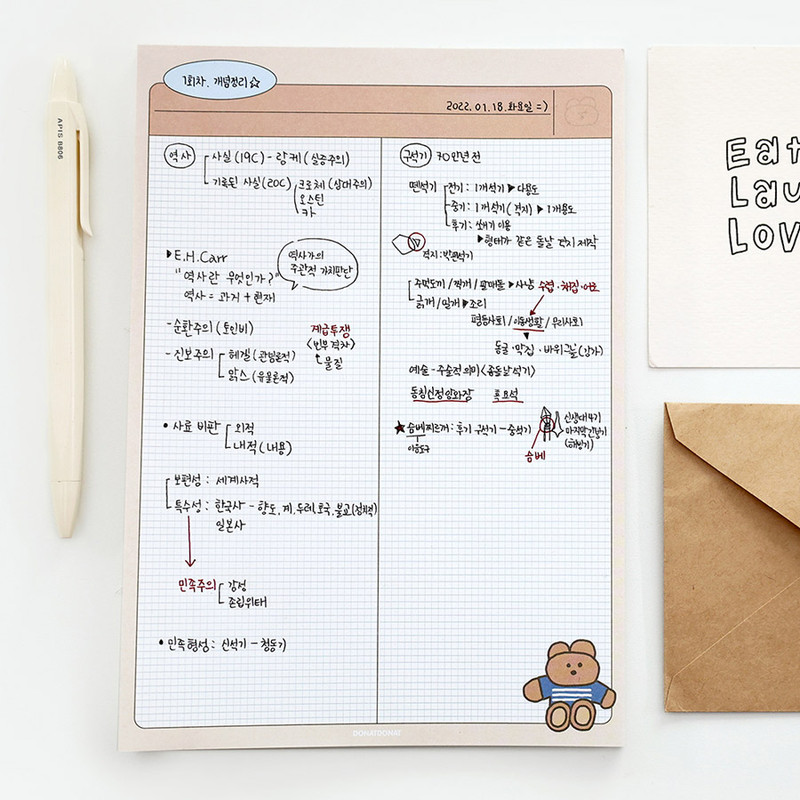 1회차. 개념정리☆
2022. 01. 18. 화요일 =)
역사
사실 (19C) - 랑케 (실증주의)
기록된 사실 (20C)
크로체 (상대주의)
오스틴
카
▶E.H.Carr
"역사란 무엇인가?"
역사 = 과거 + 현재
역사가의
주관적 가치판단
- 순환주의 (토인비)
- 진보주의
헤겔 (관념론적)
맑스 (유물론적)
계급투쟁
<빈부격차>
물질
• 사료 비판
외적
내적 (내용)
보편성 : 세계사적
특수성 : 한국사 - 향도, 계, 두레, 호국, 불교
일본사
민족주의
감성
존립위태
• 민족형성 : 신석기 - 청동기
구석기 70만년 전
뗀석기
전기 : 1개석기 ▶ 다용도
중기 : 1개석기 (격지) ▶ 1개용도
후기 : 쐐기 이용
▶형태가 같은 돌날 격지 제작
격지 : 박편석기
주먹도끼 / 찍개 / 팔매돌 ▶ 사냥 수렵 · 채집 · 어로
긁개 / 밀개 ▶ 조리
평등사회 / 이동생활 / 무리사회
동굴 · 막집 · 바위그늘 (강가)
예술 - 주술적 의미 <공주 석기>
동침신전앙와장 흑요석
★슴베찌르개 : 후기 구석기 - 중석기
이음도구
슴베
신생대 4기
마지막 간빙기
(해빙기)
DONATDONAT
APIS B806
Eat
Lau
Lov